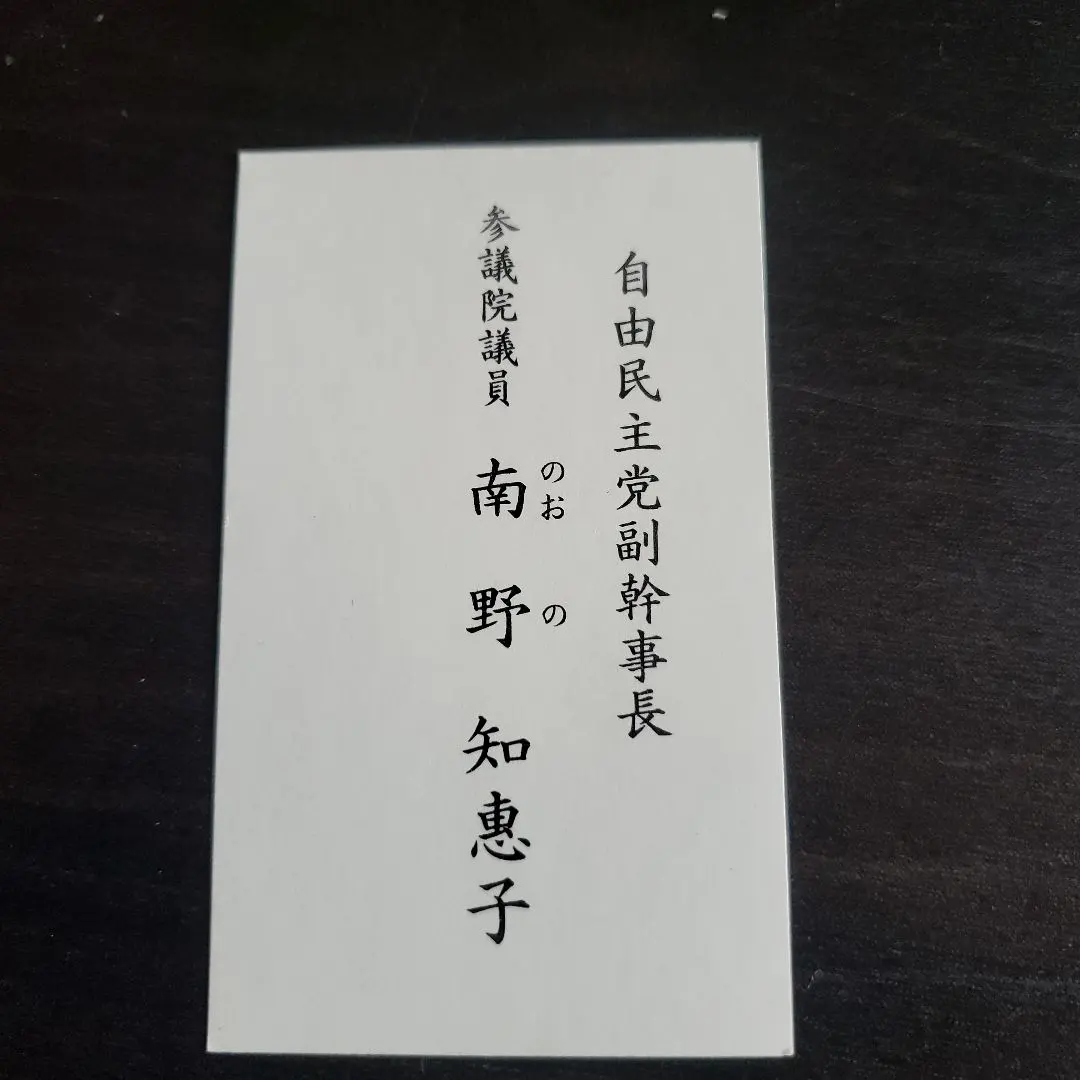 自由民主党副幹事長
参議院議員 南野知惠子
のおの